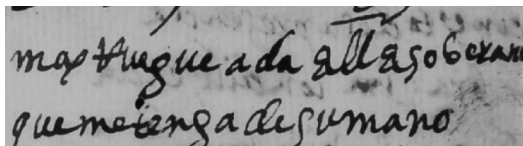 mas rruegue a da alla soberan
que me tenga de su mano